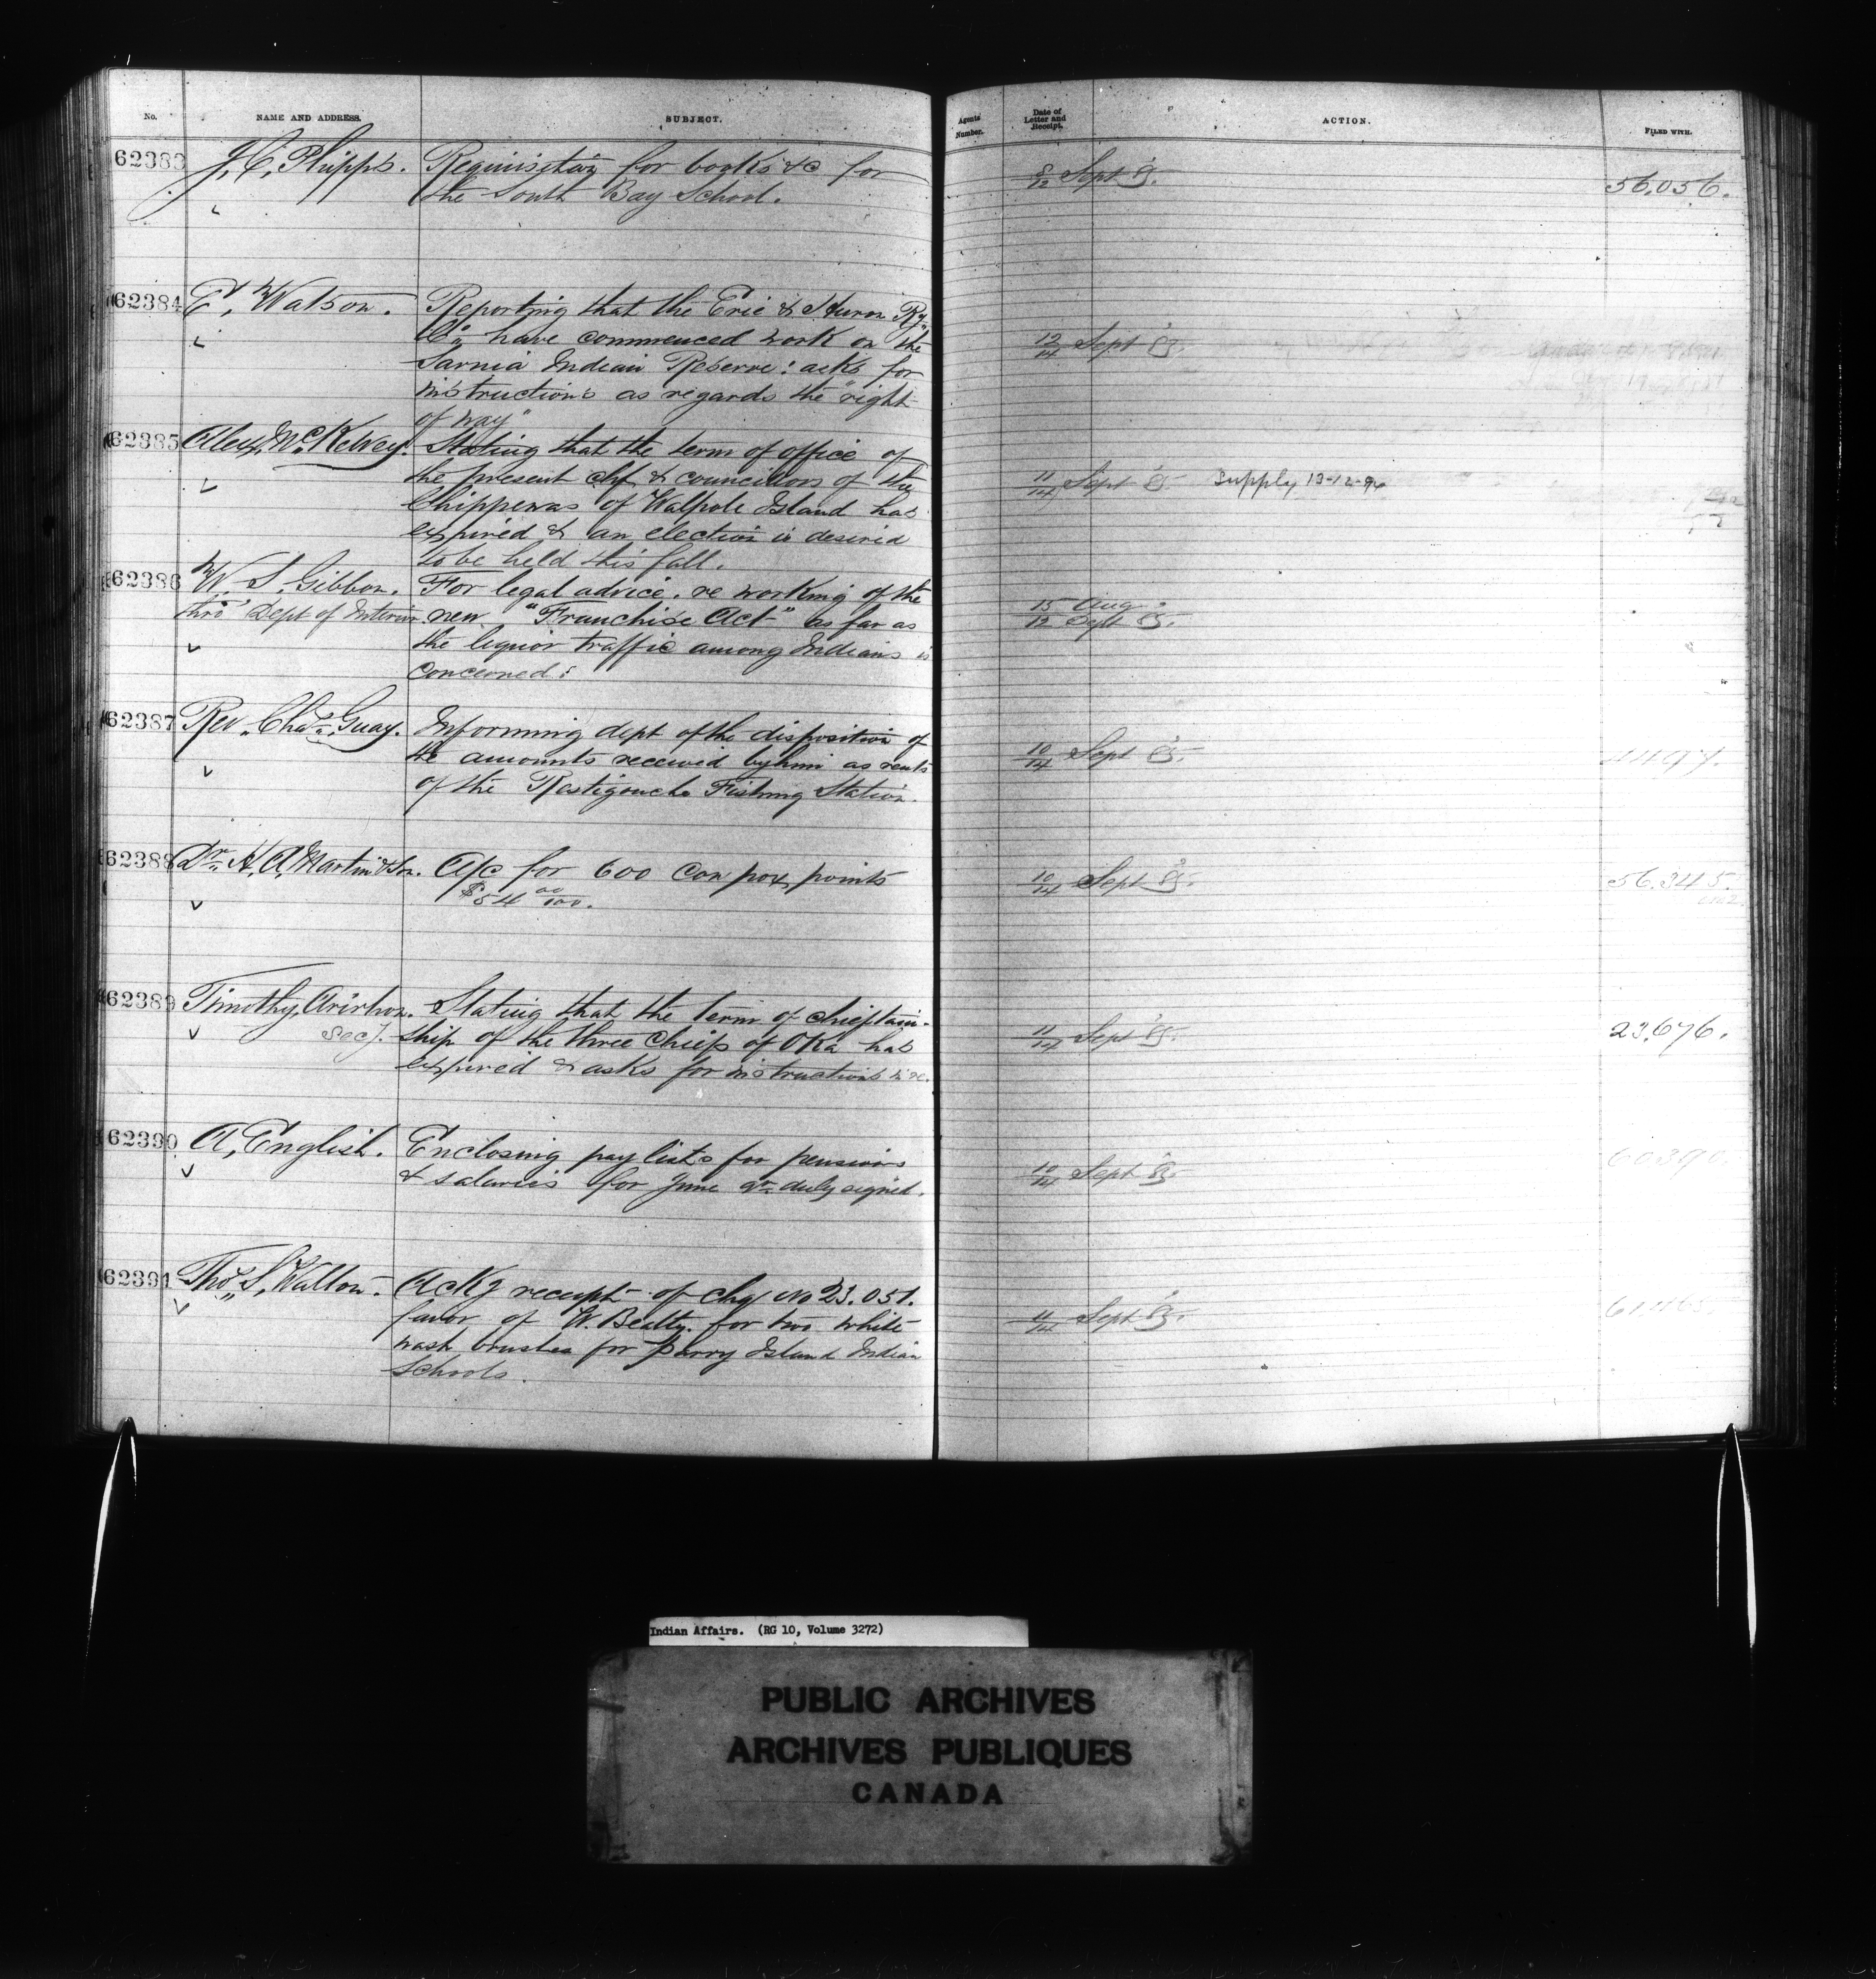 No. NAME AND ADDRESS. SUBJECT. Agents' Number. Date of Letter and Receipt. ACTION. FILED WITH.
62383 J. C. Phipps. Requisition for books &c for 8/12 Sept 85. 56.056.
the South Bay School.
62384 E. Watson. Reporting that the Erie & Huron Ry
Co. have commenced work on the 12/14 Sept 85.
Sarnia Indian Reserve: asks for
instructions as regards the "right
of way"
62385 Alex. McKelvey. Stating that the term of office of
the present chf & councillors of the 11/14 Sept 85 Supply 13-12-94
Chippewas of Walpole Island has
expired & an election is desired
to be held this fall.
62386 W. S. Gibbon. For legal advice. re working of the 15 Aug
thro' Dept of Interior new "Franchise Act" as far as 12 Sept 85.
the liquor traffic among Indians is
concerned:
62387 Rev. Chas. Guay. Informing dept of the disposition of
the amounts received by him as rents 10/14 Sept 85.
of the Restigouche Fishing Station.
62388 Dr. H. A. Martin & Son. A/c for 600 Cow pox points 10/14 Sept 85. 56.345.
$54 00/100.
62389 Timothy, Arirhon. Stating that the term of chieftain-
Secy. ship of the three Chiefs of Oka has 11/14 Sept 85. 23.676.
expired & asks for instructions &c.
62390 A. English. Enclosing pay lists for pensions 60390.
& salaries for June qr. duly signed. 10/14 Sept 85.
62391 Thos. S. Walton. Ackg receipt of chq No 23.051.
favor of W. Beatty. for two white 11/14 Sept 85.
wash brushes for Parry Island Indian
Schools.
Indian Affairs. (RG 10, Volume 3272)
PUBLIC ARCHIVES
ARCHIVES PUBLIQUES
CANADA